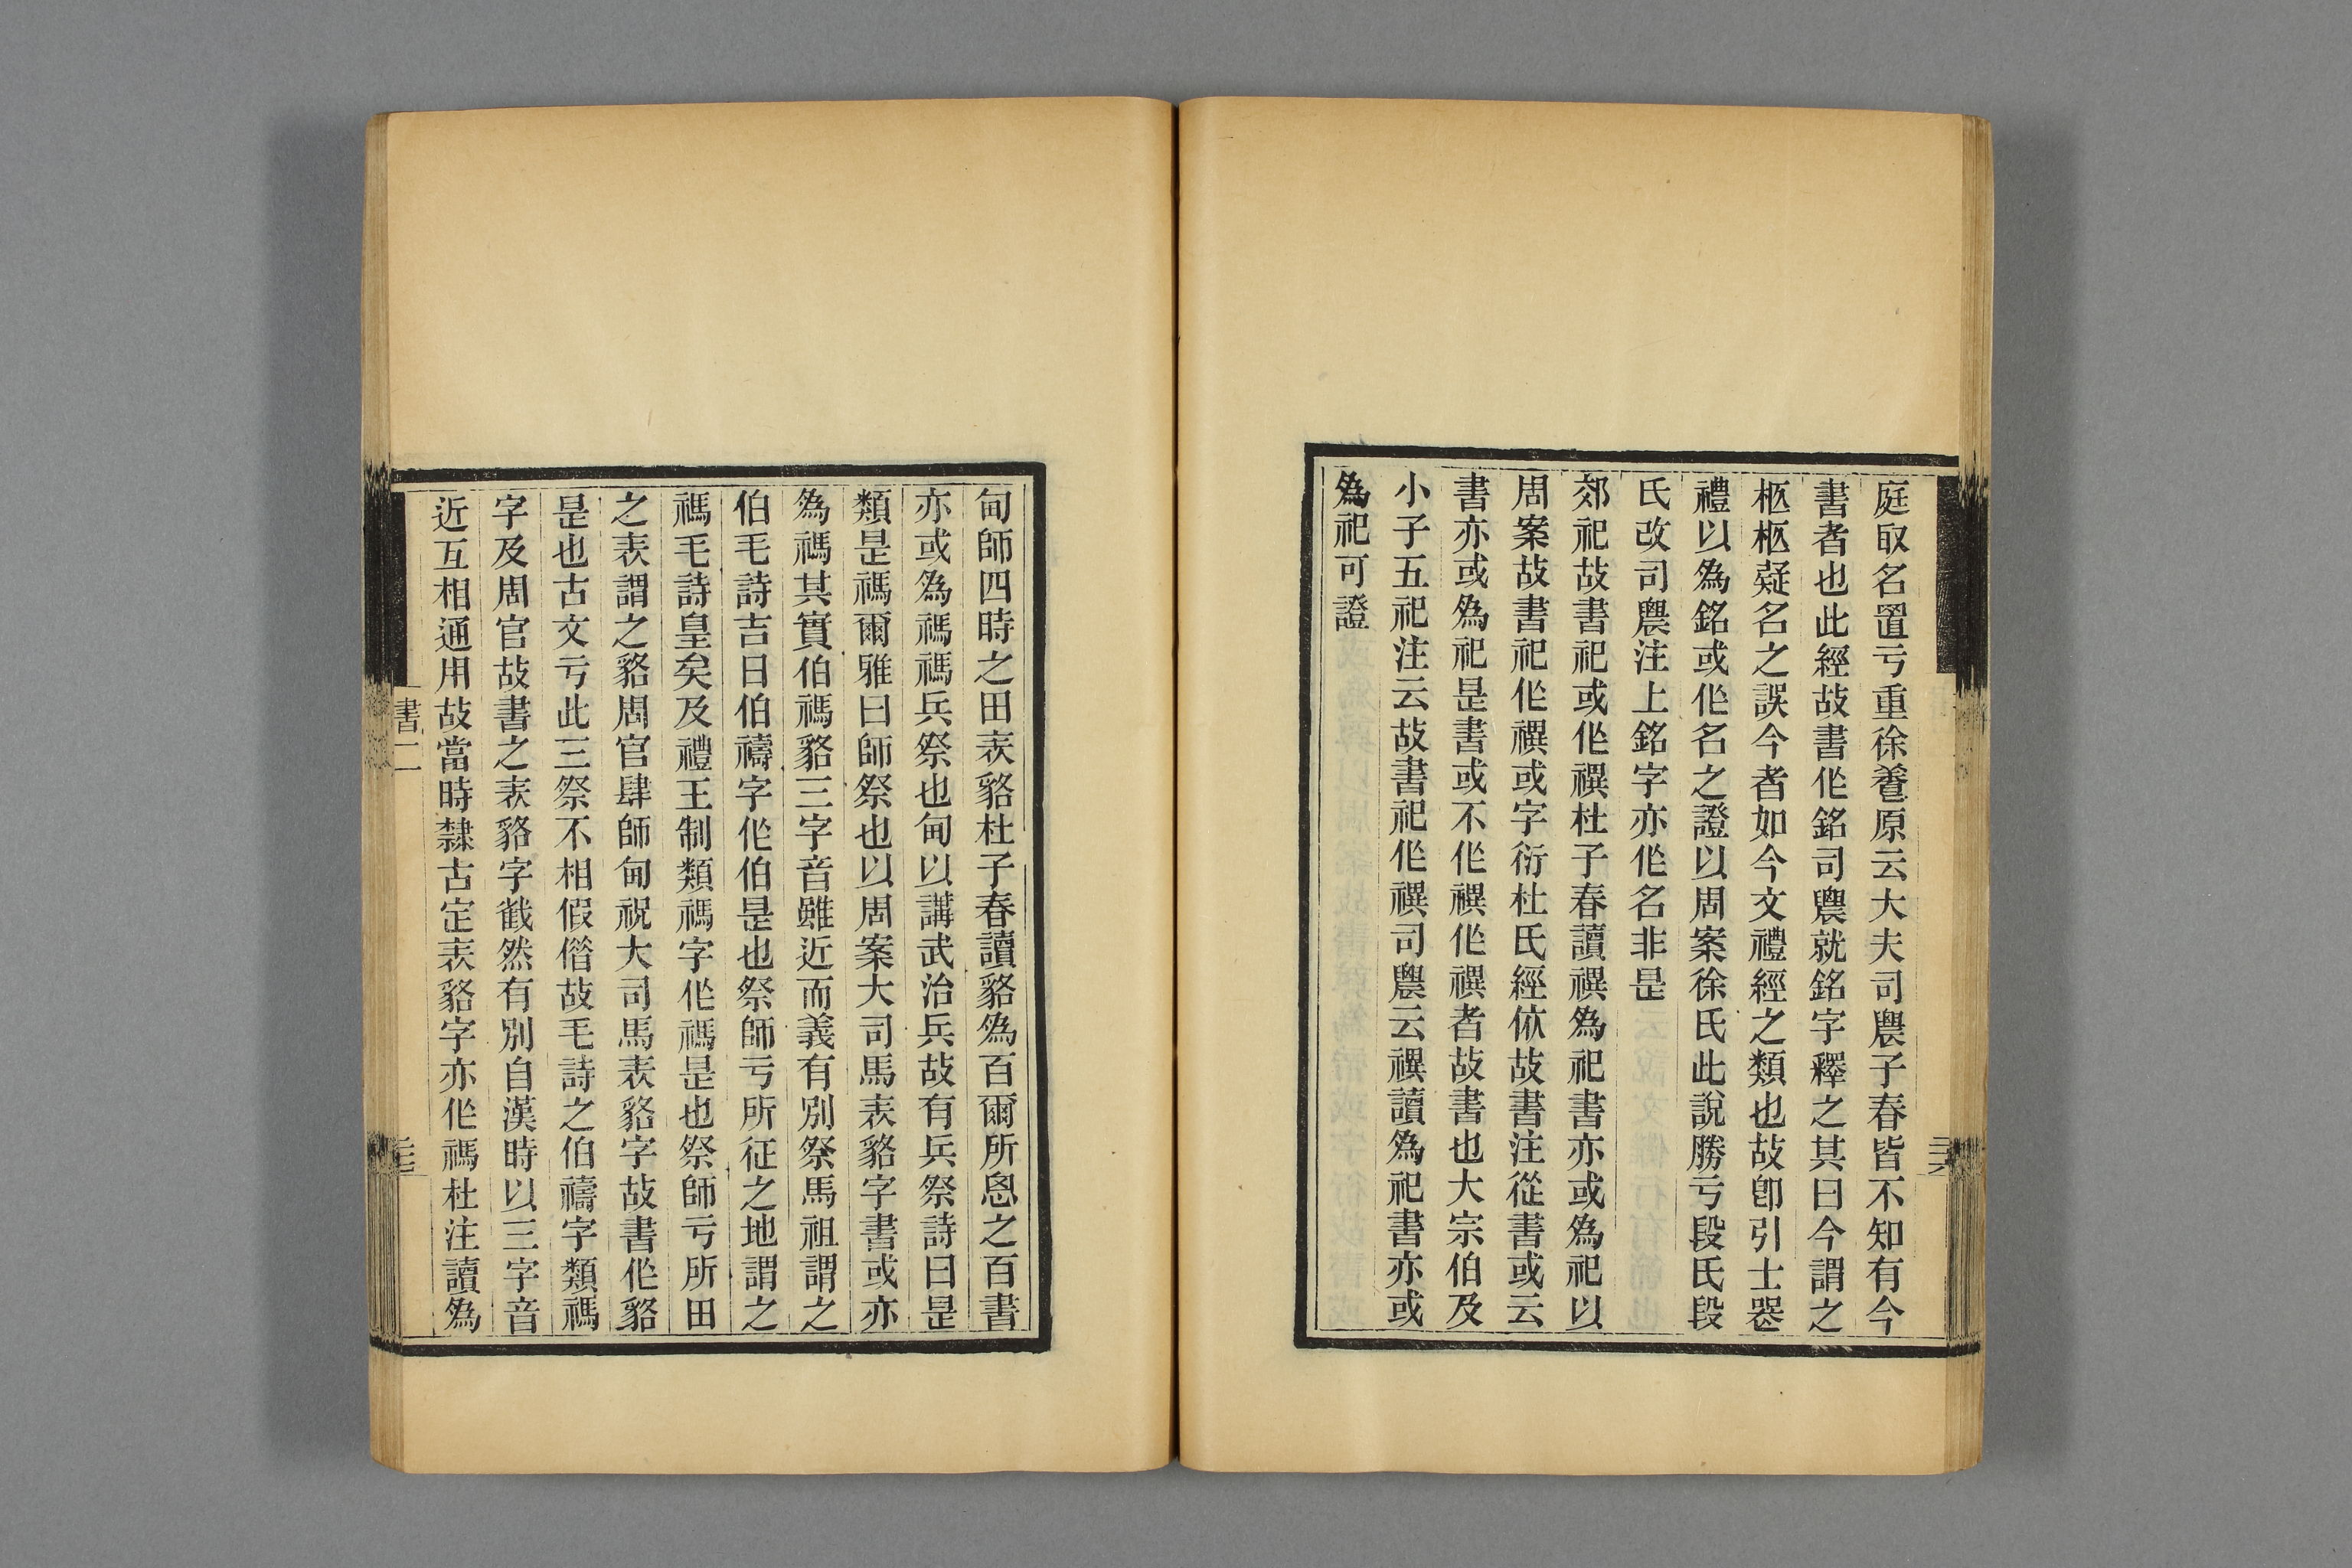 庭取名置亏重徐養原云大夫司農子春皆不知有今
書者也此經故書作銘司農就銘字釋之其曰今謂之
柩柩疑名之誤今者如今文禮經之類也故卽引士器
禮以為銘或作名之證以周案徐氏此說勝亏段氏段
氏改司農注上銘字亦作名非是
郊祀故書祀或作禩杜子春讀禩為祀書亦或為祀以
周案故書祀作禩或字衍杜氏經依故書注從書或云
書亦或為祀是書或不作禩作禩者故書也大宗伯及
小子五祀注云故書祀作禩司農云禩讀為祀書亦或
為祀可證
甸師四時之田表貉杜子春讀貉為百爾所思之百書
亦或為禡禡兵祭也甸以講武治兵故有兵祭詩曰是
類是禡爾雅曰師祭也以周案大司馬表貉字書或亦
為禡其實伯禡貉三字音雖近而義有別祭馬祖謂之
伯毛詩吉日伯禱字作伯是也祭師亏所征之地謂之
禡毛詩皇矣及禮王制類禡字作禡是也祭師亏所田
之表謂之貉周官肆師甸祝大司馬表貉字故書作貉
是也古文亏此三祭不相假借故毛詩之伯禱字類禡
字及周官故書之表貉字截然有別自漢時以三字音
近互相通用故當時隸古定表貉字亦作禡杜注讀為
書二